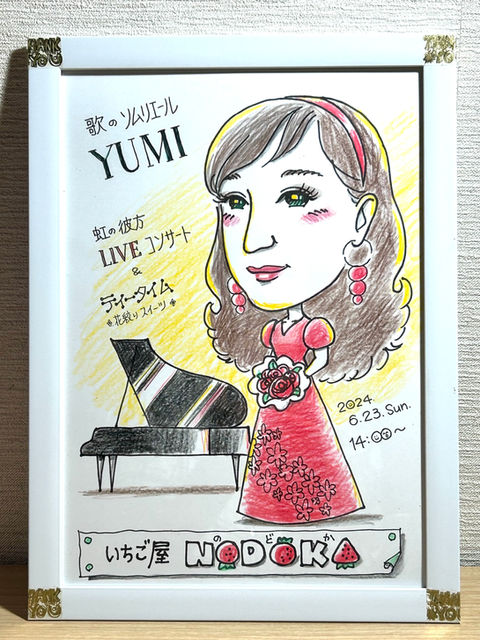 THANK YOU
THANK YOU
歌のソムリエール
YUMI
虹の彼方
LIVE コンサート
&
ティータイム
花絞りスイーツ
2024
6.23.Sun.
14:00〜
いちご屋 NODOKA
のどか
THANK YOU
THANK YOU